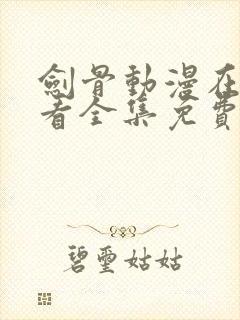 劍骨動漫在
看全集免費
碧璽姑姑